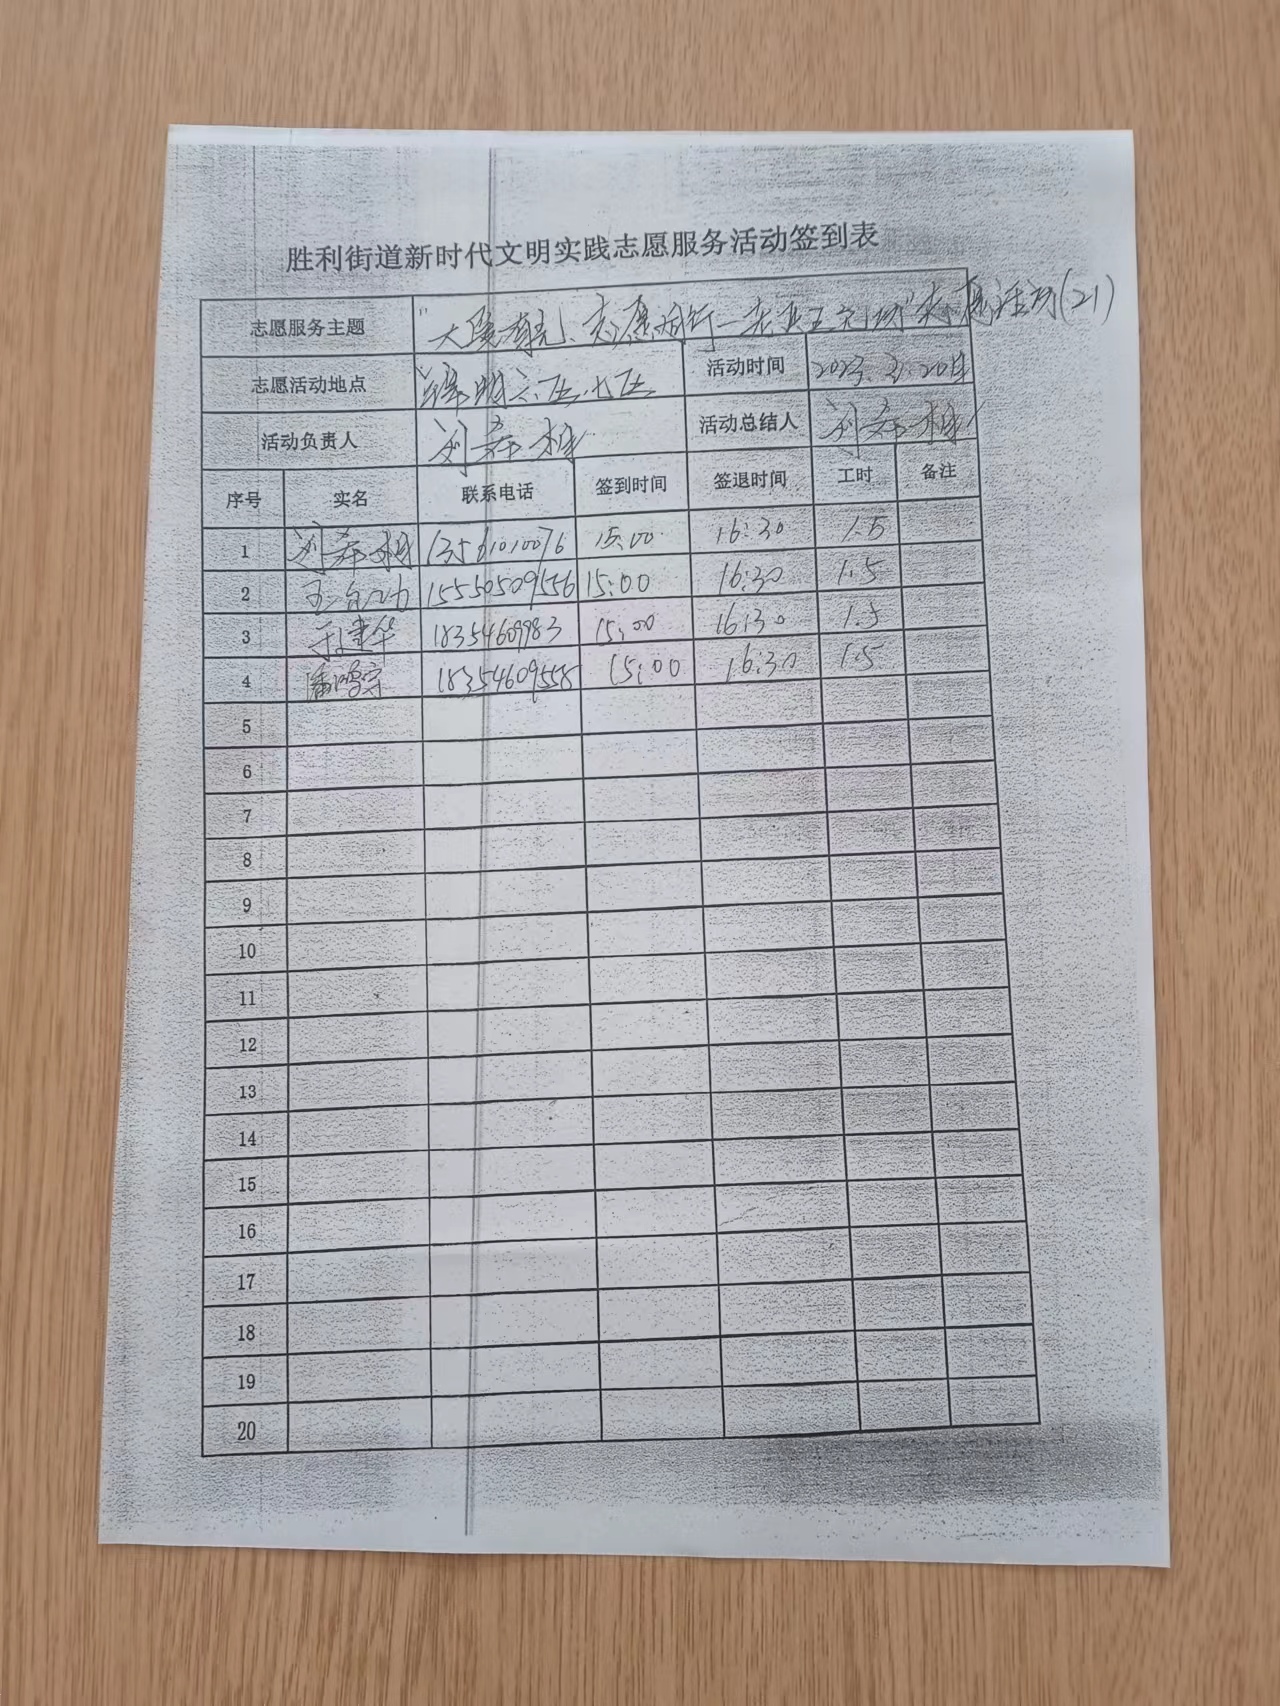 胜利街道新时代文明实践志愿服务活动签到表
志愿服务主题 志愿同行一 活动(21)
志愿活动地点 六区七区 活动时间 2023.3.20
活动负责人 刘希梅 活动总结人 刘希梅
序号 实名 联系电话 签到时间 签退时间 工时 备注
1 刘希梅 13561010076 15:00 16:30 1.5
2 15550509556 15:00 16:30 1.5
3 于建华 18354609983 15:00 16:30 1.5
4 潘鸣宇 18354609558 15:00 16:30 1.5
5
6
7
8
9
10
11
12
13
14
15
16
17
18
19
20